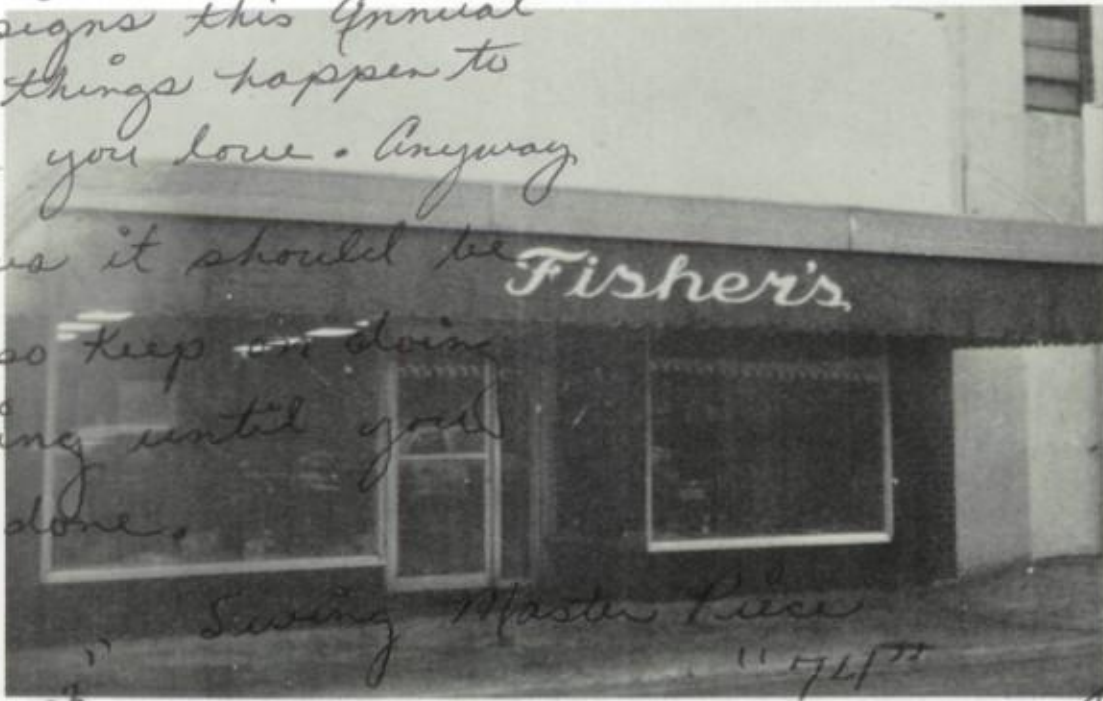 signs this Annual
things happen to
you love. Anyway
it should be
Fisher's
so Keep on doing
until you
done.
Swing Master Piece
"74"